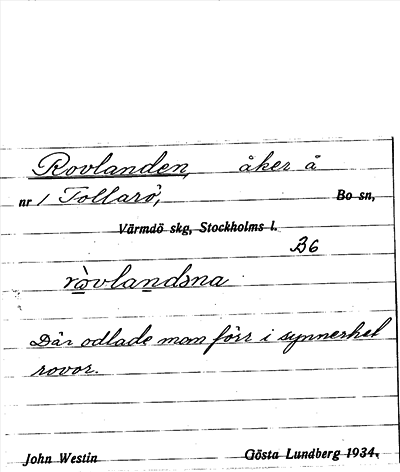 Rovlanden, åker å
nr 1 Tollarö, Bo sn,
Värmdö skg, Stockholms l.
B6
ròvlandsna
Där odlade mom förr i synnerhet
rovor.
John Westin Gösta Lundberg 1934.